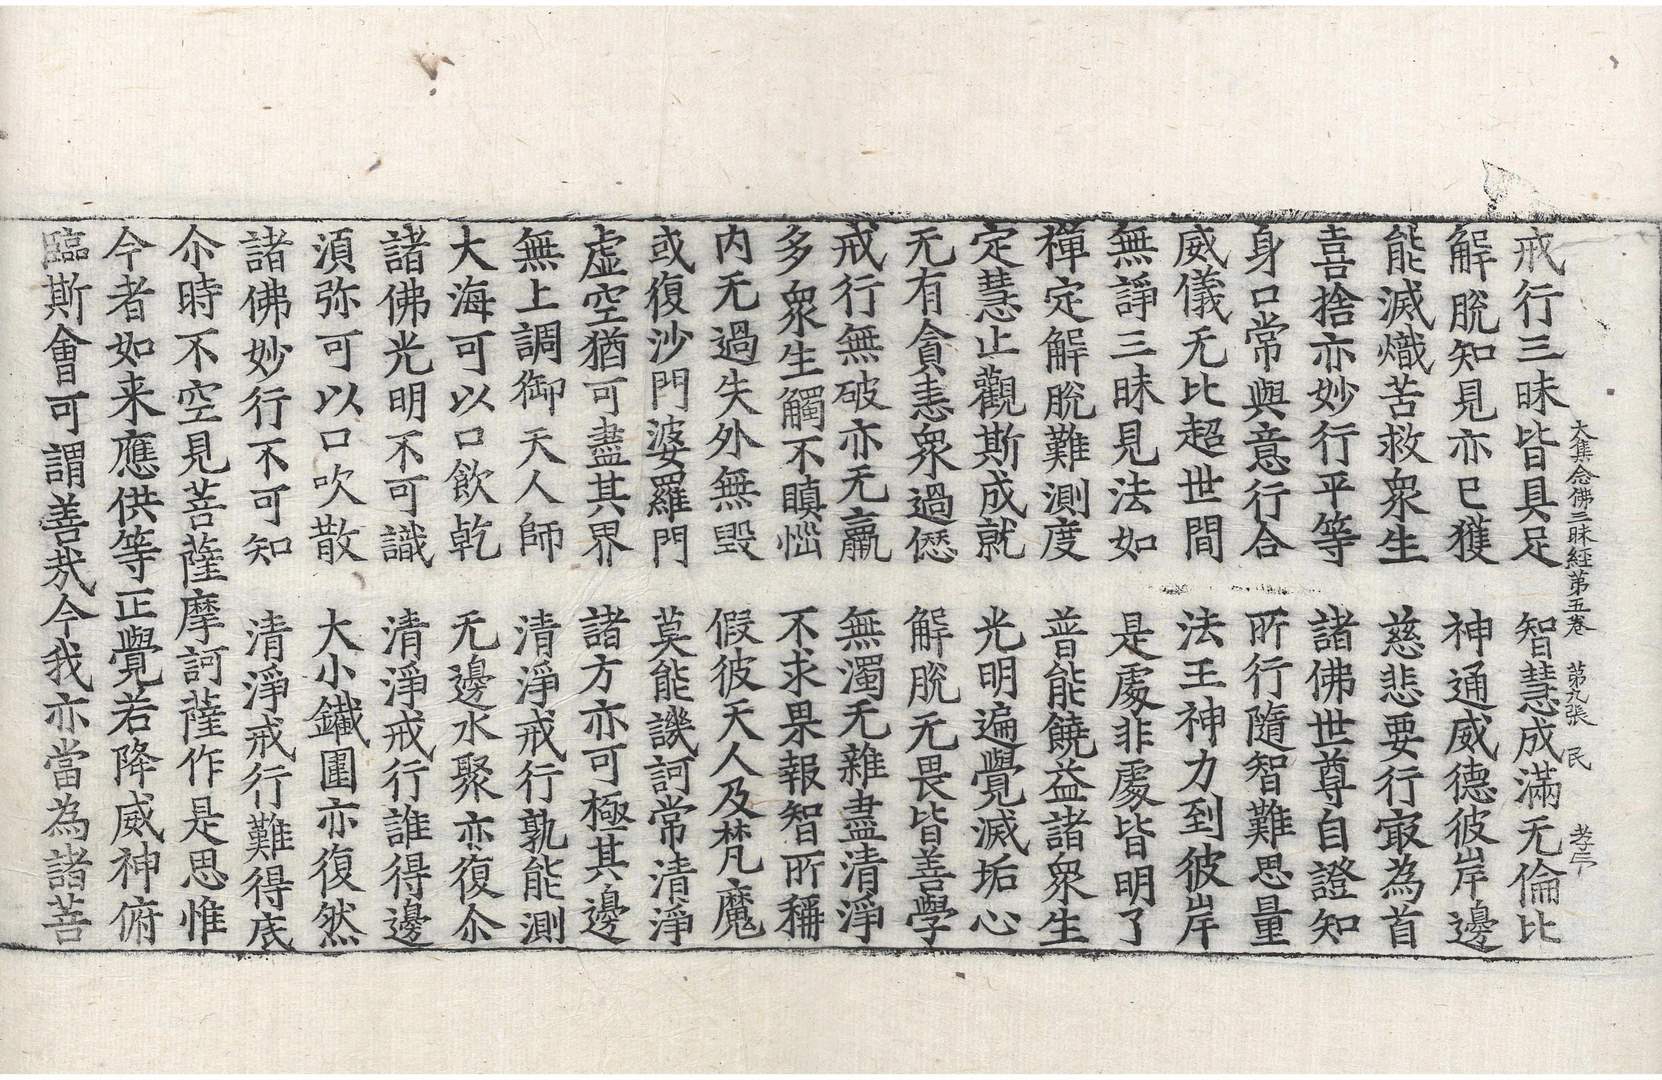 大集念佛三昧経第五卷　第九張　民　孝三
戒行三昧皆具足　智慧成滿无倫比
解脫知見亦已獲　神通威德彼岸邊
能滅熾苦救衆生　慈悲要行㝡為首
喜捨亦妙行平等　諸佛世尊自證知
身口常與意行合　所行隨智難思量
威儀无比超世間　法王神力到彼岸
無諍三昧見法如　是處非處皆明了
禪定解脫難測度　普能饒益諸衆生
定慧止觀斯成就　光明遍覺滅垢心
无有貪恚衆過𠎝　解脫无畏皆善學
戒行無破亦无羸　無濁无雜盡清淨
多衆生觸不瞋惱　不求果報智所稱
内无過失外無毀　假彼天人及梵魔
或復沙門婆羅門　莫能譏訶常清淨
虛空猶可盡其界　諸方亦可極其邊
無上調御天人師　清淨戒行孰能測
大海可以口飲乾　无邊水聚亦復尒
諸佛光明不可識　清淨戒行誰得邊
湏弥可以口吹散　大小鐵圍亦復然
諸佛妙行不可知　清淨戒行難得底
尒時不空見菩薩摩訶薩作是思惟
今者如来應供等正覺若降威神俯
臨斯會可謂善㢤今我亦當為諸菩